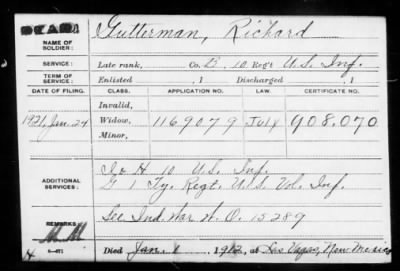 DEAD
NAME OF SOLDIER: Gutterman, Richard
SERVICE: Late rank, Co. B, 10 Reg't U.S. Inf.
TERM OF SERVICE: Enlisted , 1 Discharged , 1
DATE OF FILING. CLASS. APPLICATION NO. LAW. CERTIFICATE NO.
Invalid,
1921, Jan. 24 Widow, 1169079 908.070
Minor,
ADDITIONAL SERVICES: I & H 10 U.S. Inf.
G 1 Ty. Regt. U.S. Vol. Inf.
See Ind. War W. O. 15289
REMARKS
Died Jan. 1912, at Las Vegas, New Mexico